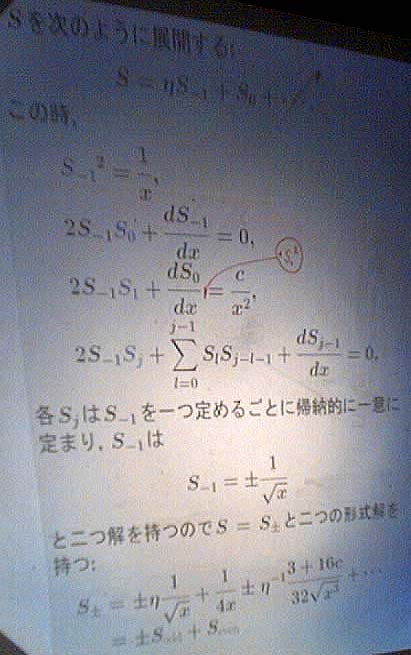 Sを次のように展開する:
S = ηS₋₁ + S₀ + ⋯,
この時,
S₋₁² = 1/x,
2S₋₁S₀ + dS₋₁/dx = 0,
2S₋₁S₁ + dS₀/dx = c/x²,
2S₋₁Sⱼ + ∑_{l=0}^{j-1} S_l S_{j-l-1} + dS_{j-1}/dx = 0,
各SⱼはS₋₁を一つ定めるごとに帰納的に一意に
定まり, S₋₁は
S₋₁ = ±1/√x
と二つ解を持つのでS = S±と二つの形式解を
持つ:
S± = ±η 1/√x + 1/4x ± η⁻¹ (3 + 16c)/(32√x³) + ⋯
= ±S_odd + S_even